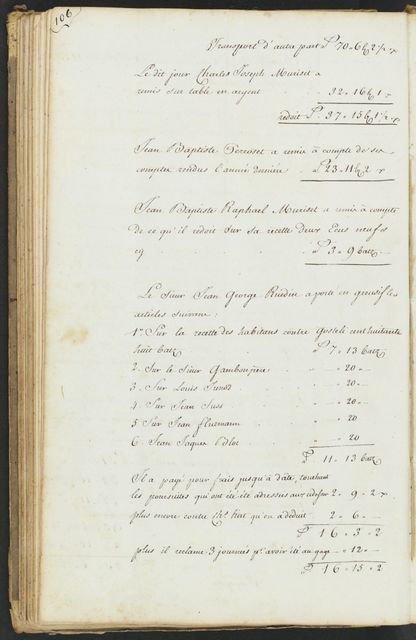 106
Transport d'autre part ₤ 70 " 6 ß 2 1/2 x
Le dit jour Charles Joseph Muriset a
remis sur table en argent 32 " 16 ß 1
redoit ₤ 37 " 15 ß 1 1/2 x
Jean Baptiste a remis à compte de ses
comptes rendus l'année dernière ₤ 23 " 11 ß 2 x
Jean Baptiste Raphael Muriset a remis à compte
de ce qu'il redoit sur sa recette deux Ecus neufs
cy ₤ 3 " 9 batz
Le Sieur Jean George Ruedin a porté en les
articles suivans :
1° Sur la recette des habitans contre Gosteli cent huitante
huit batz ₤ 7 " 13 batz
2. Sur le Sieur " 20 "
3. Sur Louis Junod " 20 "
4. Sur Jean " 20 "
5. Sur Jean " 20
6. Jean Jaques " 20
₤ 11 " 13 batz
Il a payé pour frais jusqu'à date, touchant
les poursuites qui ont été adressés aux 2 " 9 " 2 x
plus encore contre qu'on a déduit 2 " 6 "
₤ 16 " 3 " 2
plus il reclame 3 journées pr. avoir été au gage " 12 "
₤ 16 " 15 " 2